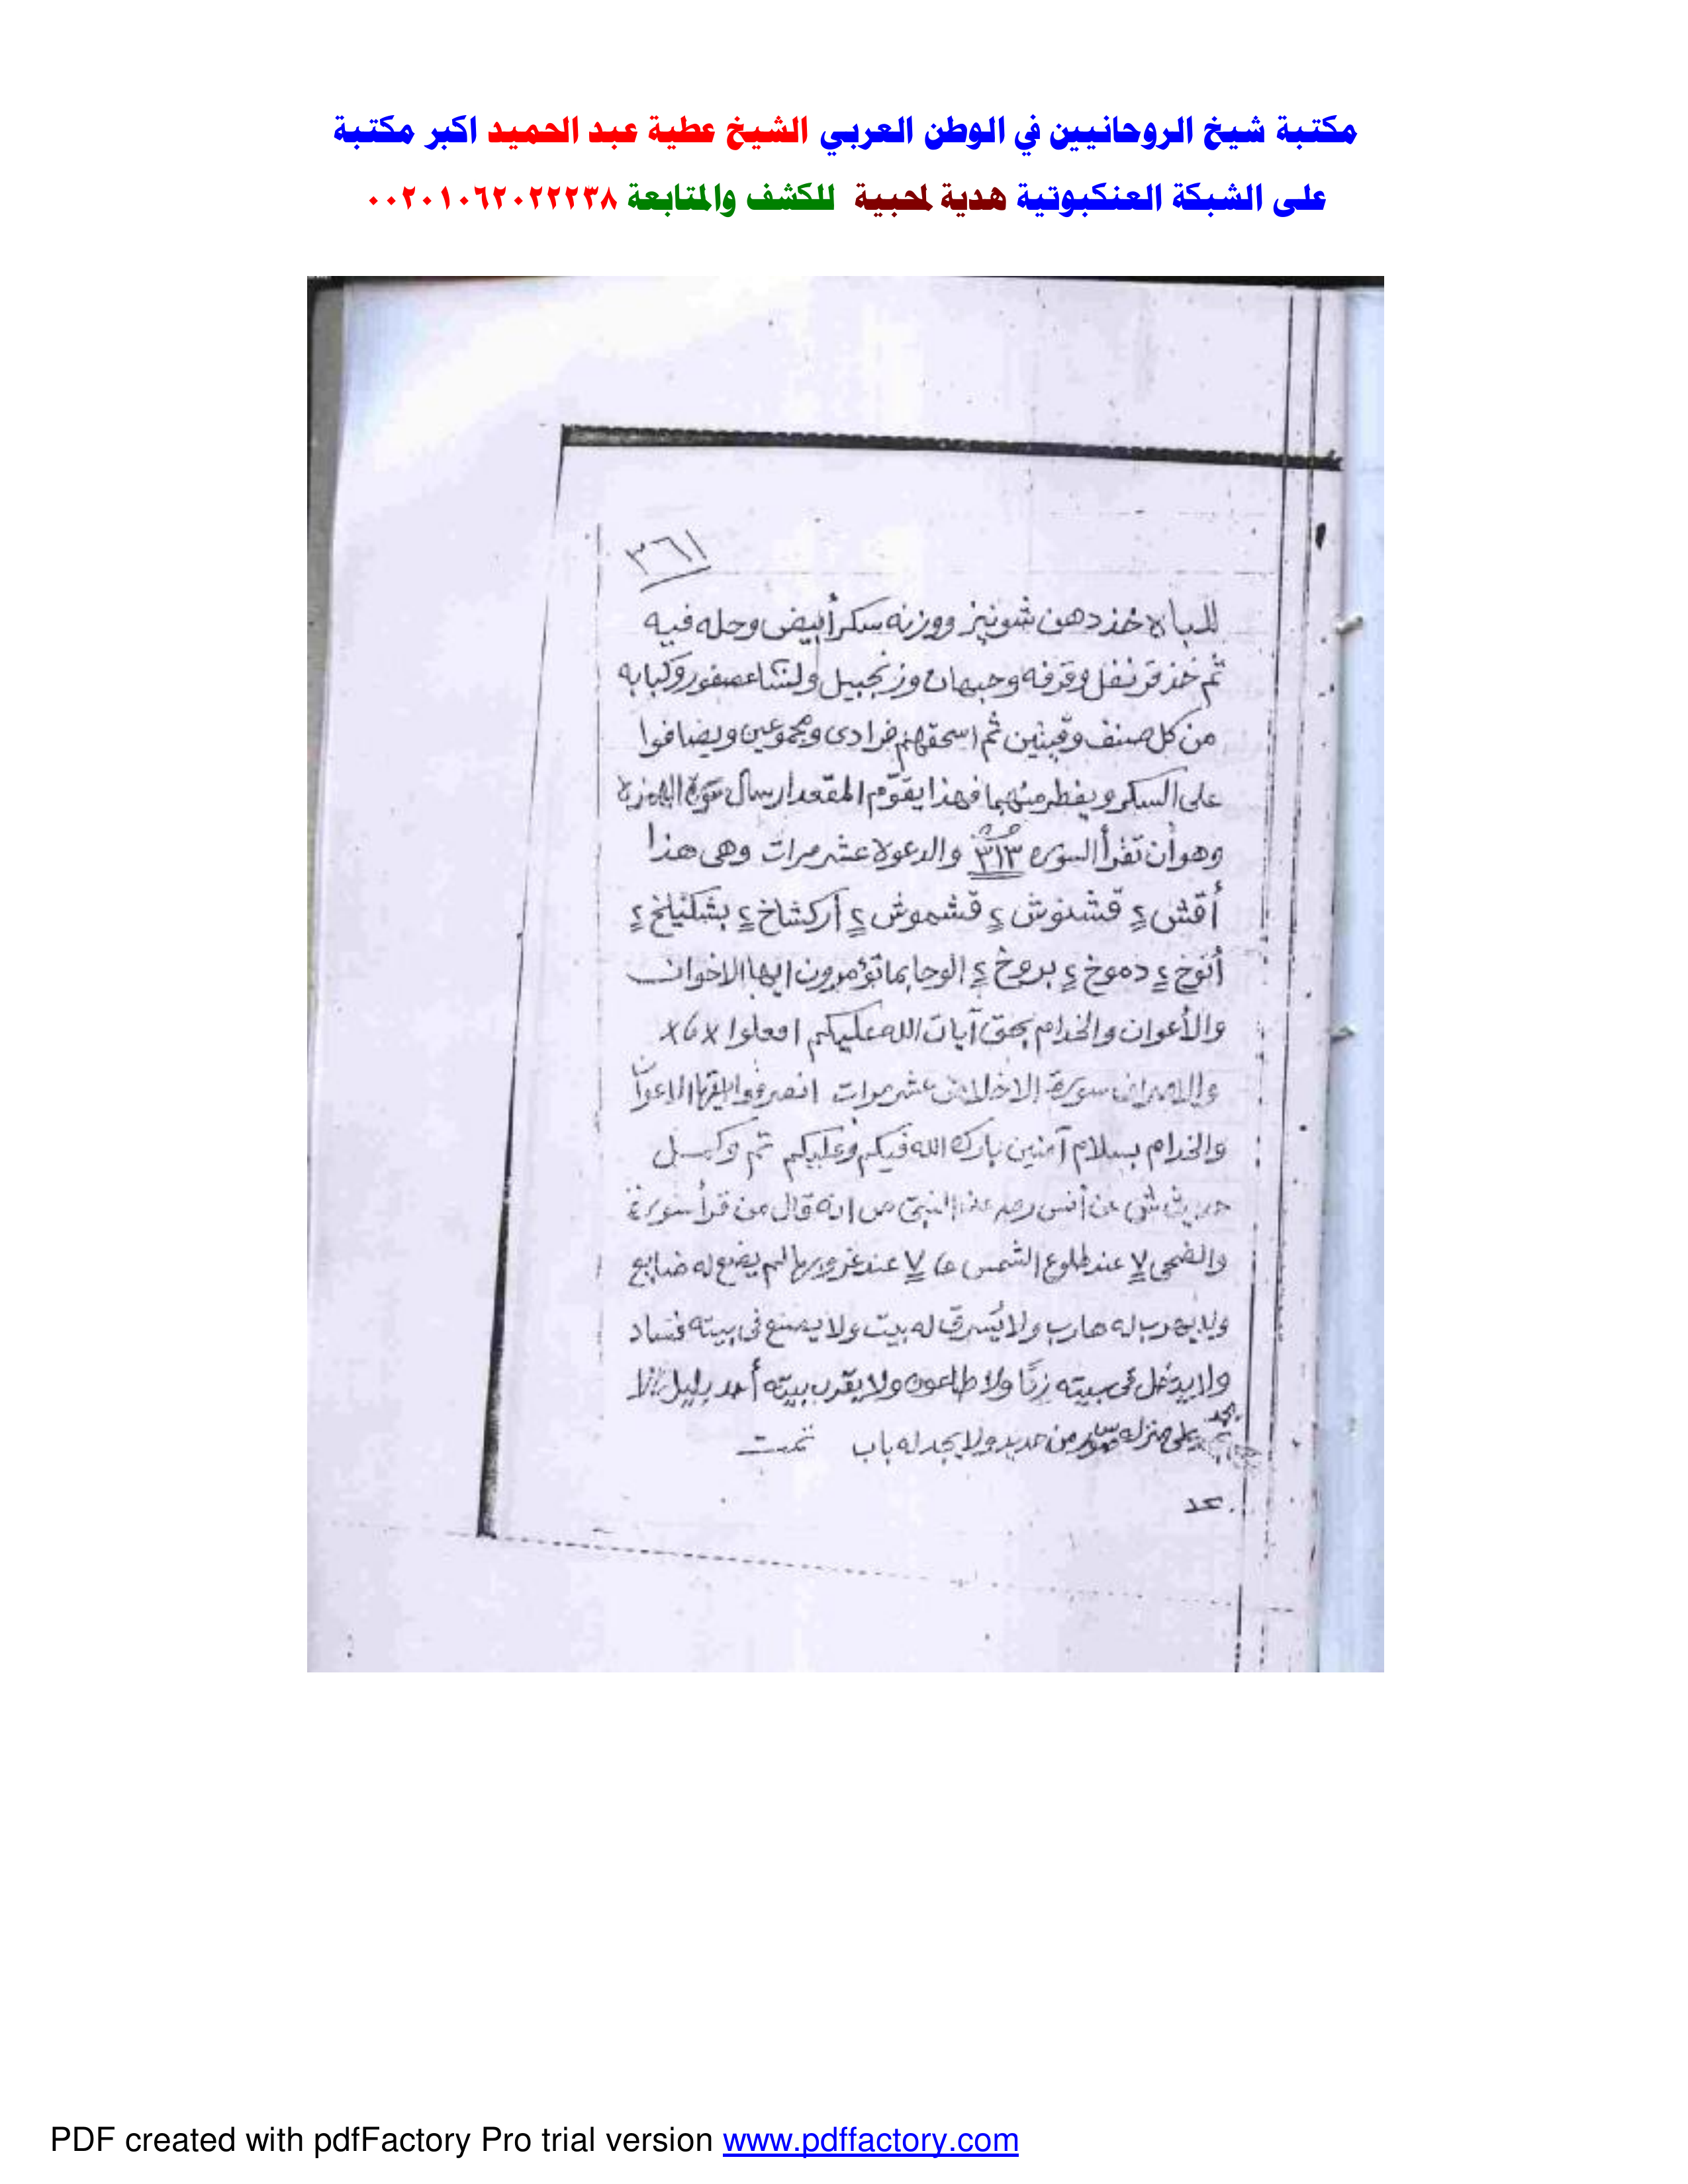 مكتبة شيخ الروحانيين في الوطن العربي الشيخ عطية عبد الحميد اكبر مكتبة
على الشبكة العنكبوتية هدية لمحبية للكشف والمتابعة ٠٠٢٠١٠٦٢٠٢٢٢٣٨
٣٦١
للباه خذ دهن شونيز ووزنه سكرأبيض وحله فيه
ثم خذ قرنفل وقرفه وحبهان وزنجبيل ولسان عصفور وكبابه
من كل صنف وقيتين ثم اسحقهم فرادى ومجموعين ويضافوا
على السكر ويفطر منهما فهذا يقوّم المقعد ارسال سورة الهمزة
وهو أن تقرأ السوره ٣١٣ والدعوة عشر مرات وهى هذا
أقش ٢ قشنوش ٢ قشموش ٢ أركشاخ ٢ بشكيلخ ٢
أنوخ ٢ دموخ ٢ بروخ ٢ الوحا بما تؤمرون ايها الاخوان
والأعوان والخدام بحق آيات الله عليكم افعلوا
سورة الاخلاص عشر مرات انصرفوا ايها الاعوان
والخدام بسلام آمنين بارك الله فيكم وعليكم تم وكمل
حديث عن أنس عن النبى ص انه قال من قرأ سورة
والضحى ٧ عند طلوع الشمس و ٧ عند غروبها لم يضع له ضايع
ولا يهرب له هارب ولا يُسرق له بيت ولا يصنع فى بيته فساد
ولا يدخل فى بيته زنًا ولا طاعون ولا يقرب بيته أحد بليل الا
يجد على منزله سور من حديد ولا يجد له باب تمت
PDF created with pdfFactory Pro trial version www.pdffactory.com